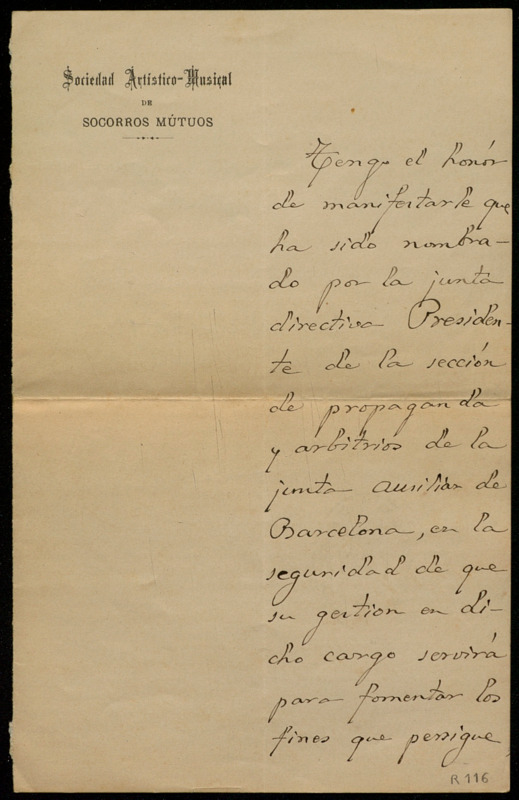 Sociedad Artístico-Musical
DE
SOCORROS MÚTUOS
Tengo el honór
de manifestarle que
ha sido nombra-
do por la junta
directiva Presiden-
te de la sección
de propaganda
y arbitrios de la
junta Ausiliár de
Barcelona, en la
seguridad de que
su gestion en di-
cho cargo servirá
para fomentar los
fines que persigue
R 116